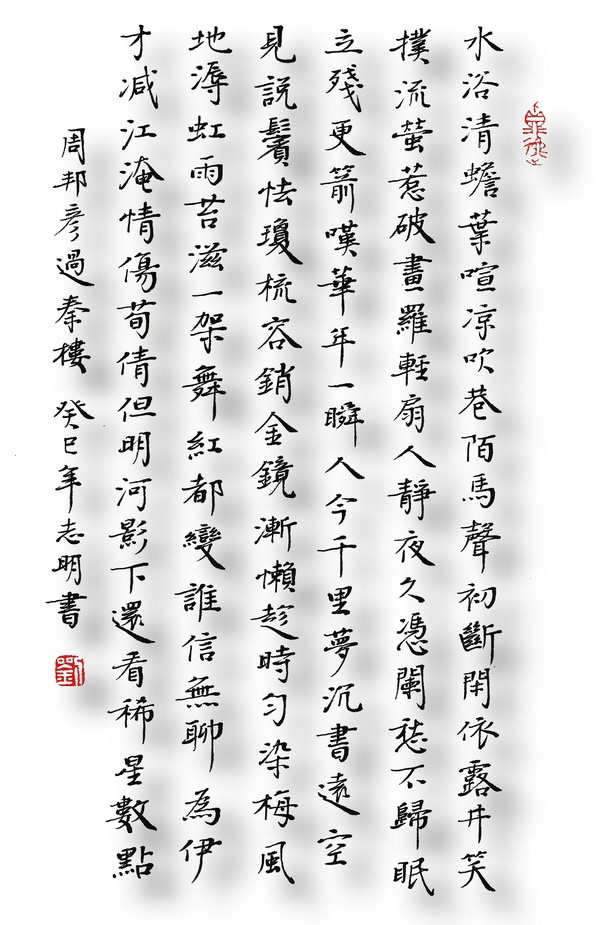 水浴清蟾葉喧凉吹巷陌馬聲初斷閑依露井笑
撲流螢惹破畫羅輕扇人靜夜久憑闌愁不歸眠
立殘更箭嘆華年一瞬人今千里夢沉書遠空
見説鬢怯瓊梳容銷金鏡漸懶趁時匀染梅風
地溽虹雨苔滋一架舞紅都變誰信無聊為伊
才減江淹情傷荀倩但明河影下還看稀星數點
周邦彥過秦樓 癸巳年志明書
劉